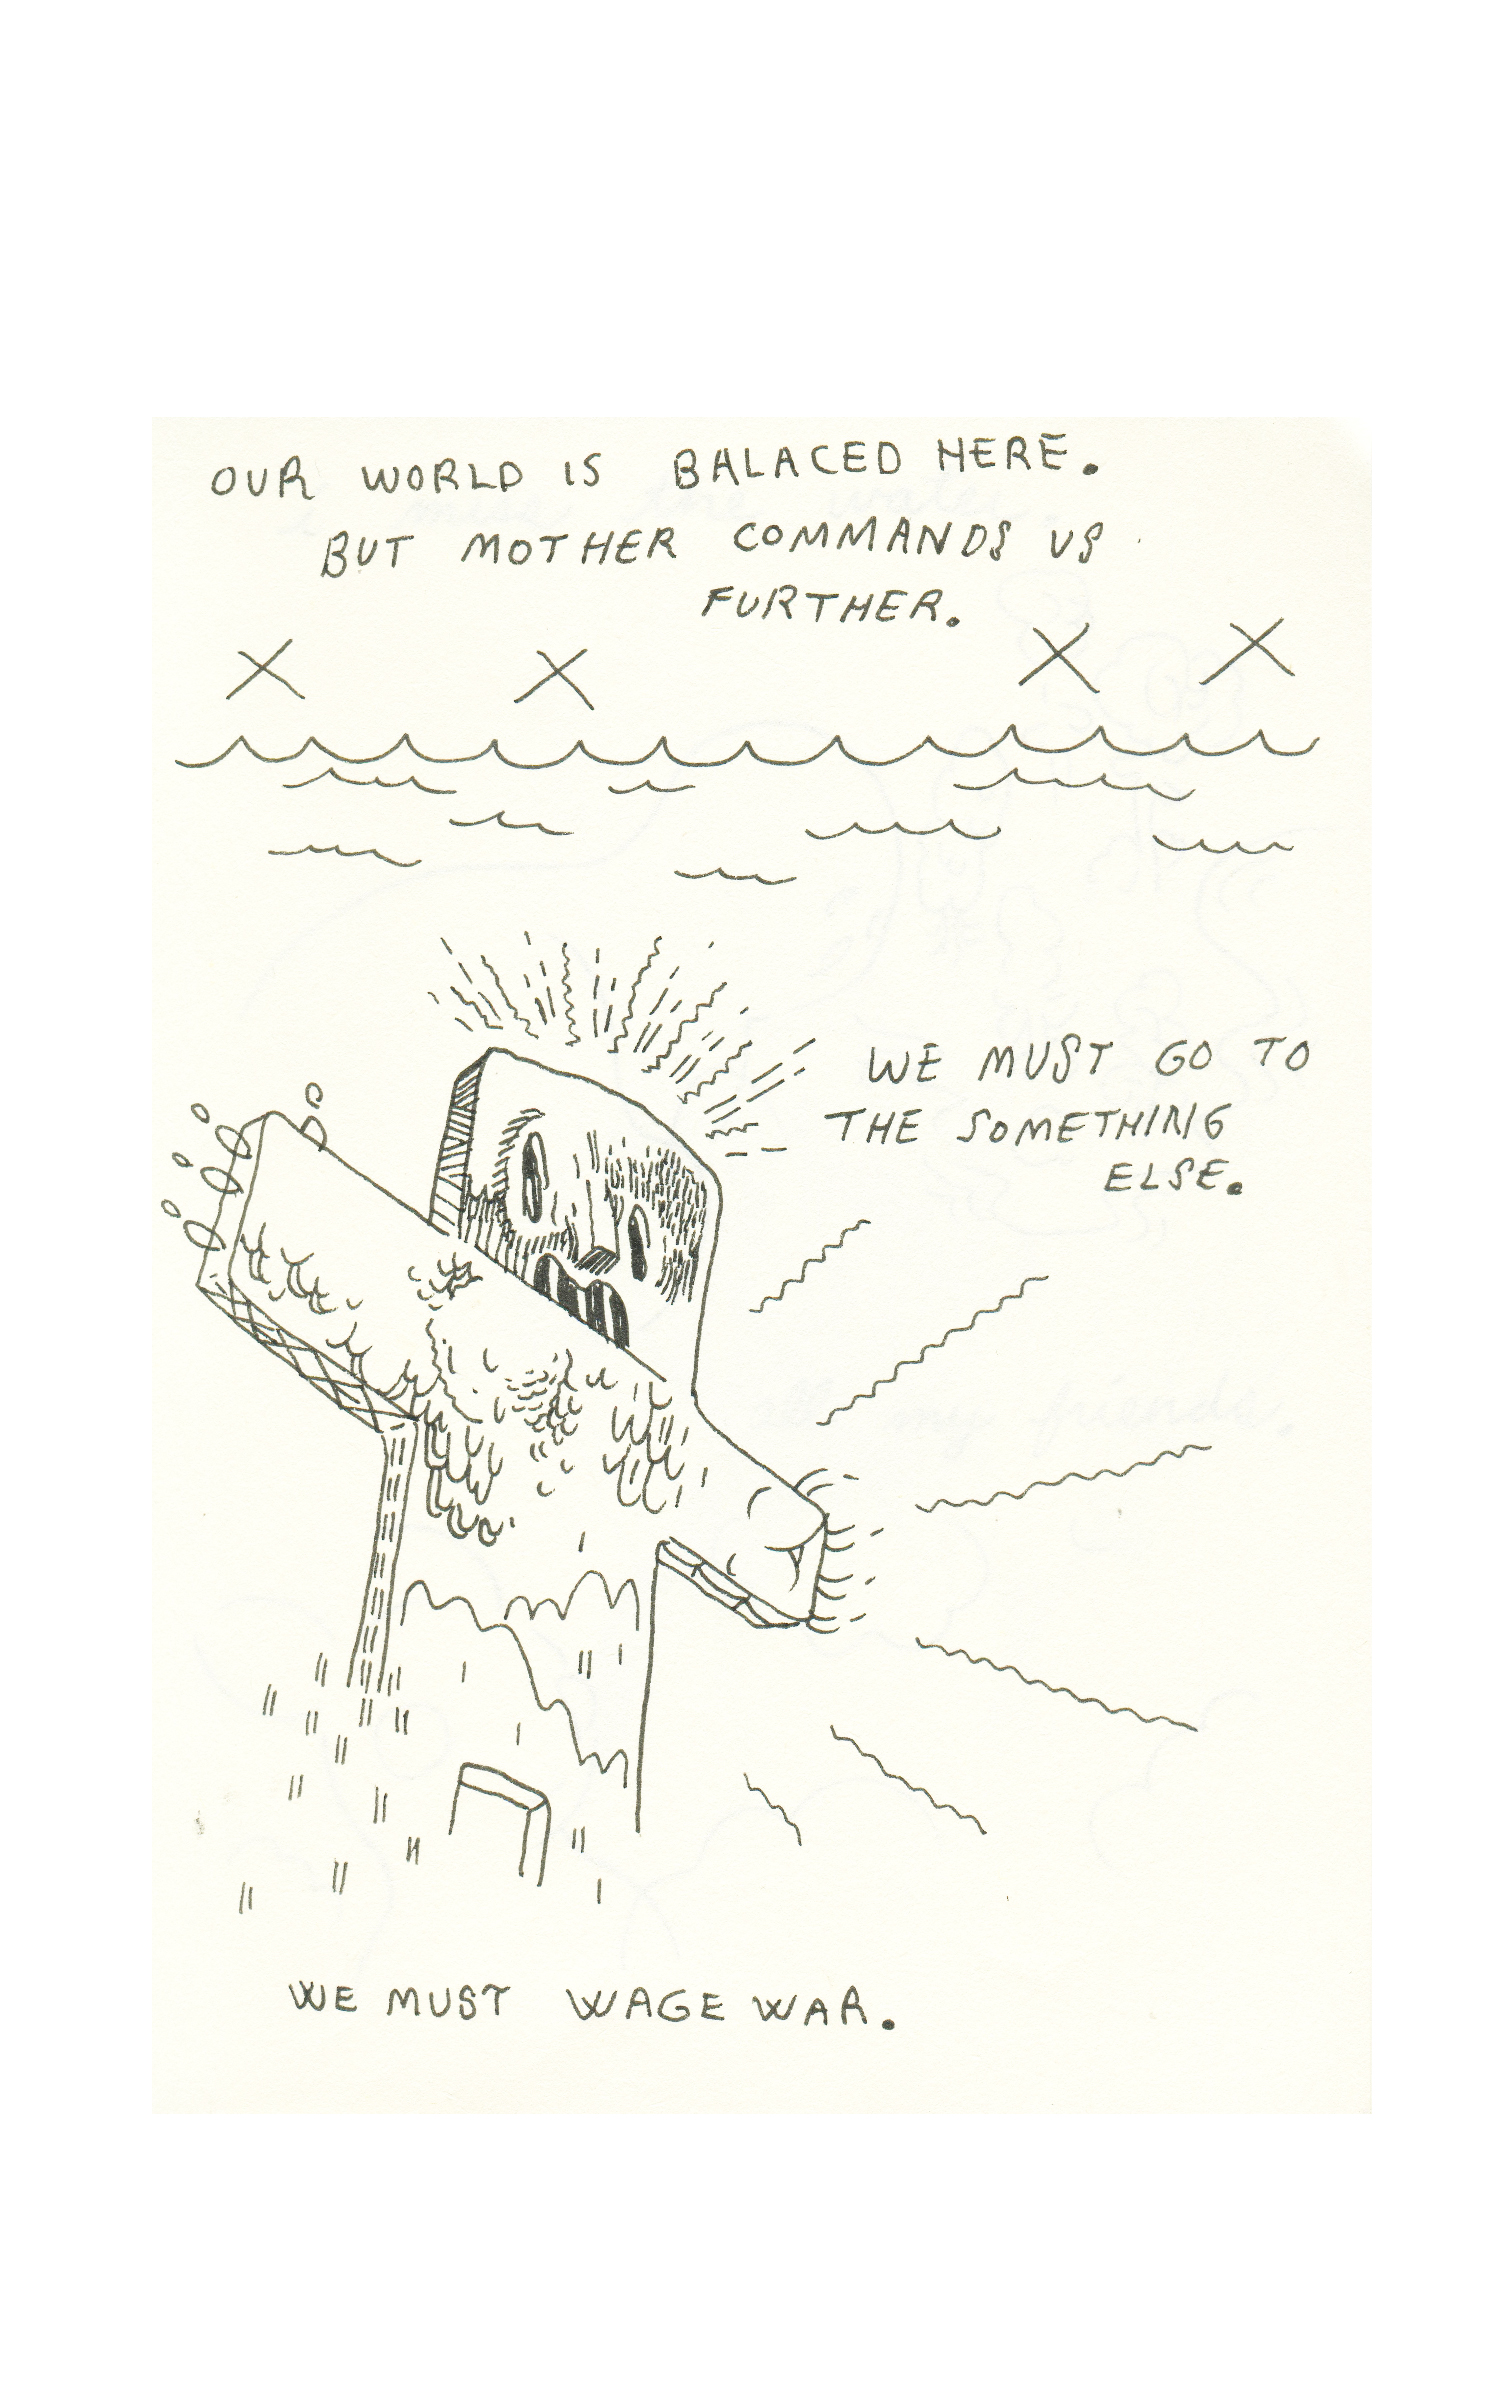 OUR WORLD IS BALACED HERE.
BUT MOTHER COMMANDS US
FURTHER.
WE MUST GO TO
THE SOMETHING
ELSE.
WE MUST WAGE WAR.